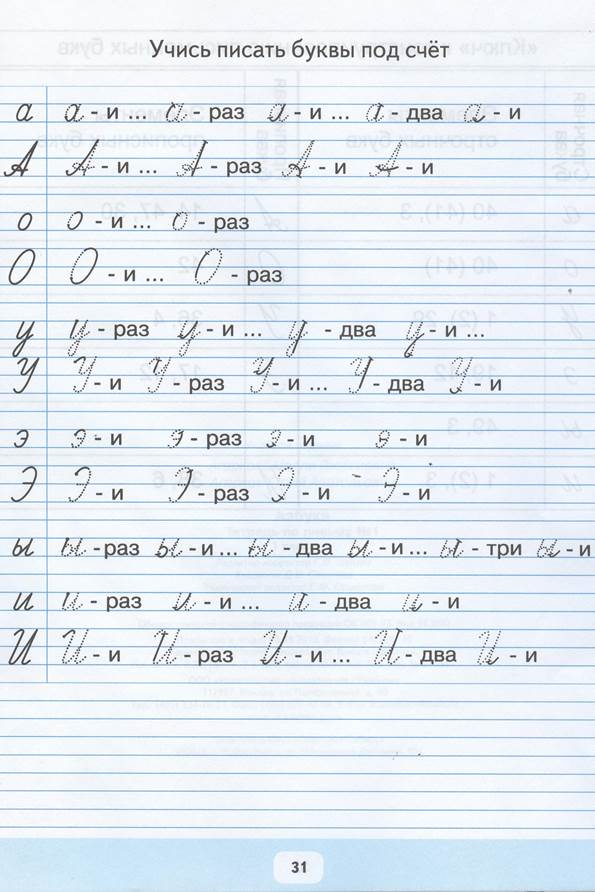 Учись писать буквы под счёт
а а - и ... а - раз а - и ... а - два а - и
А А - и ... А - раз А - и А - и
о о - и ... о - раз
О О - и ... О - раз
у у - раз у - и ... у - два у - и ...
У У - и У - раз У - и ... У - два У - и
э э - и э - раз э - и э - и
Э Э - и Э - раз Э - и Э - и
ы ы - раз ы - и ... ы - два ы - и ... ы - три ы - и
и и - раз и - и ... и - два и - и
И И - и И - раз И - и ... И - два И - и
31